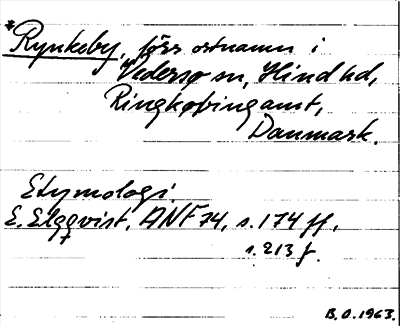 *Rynkeby, förr ortnamn i
Vedersø sn, Hind hd,
Ringkøbing amt,
Danmark.
Etymologi.
E. Elgqvist, ANF 74, s. 174 ff,
s. 213 f.
B.O. 1963.